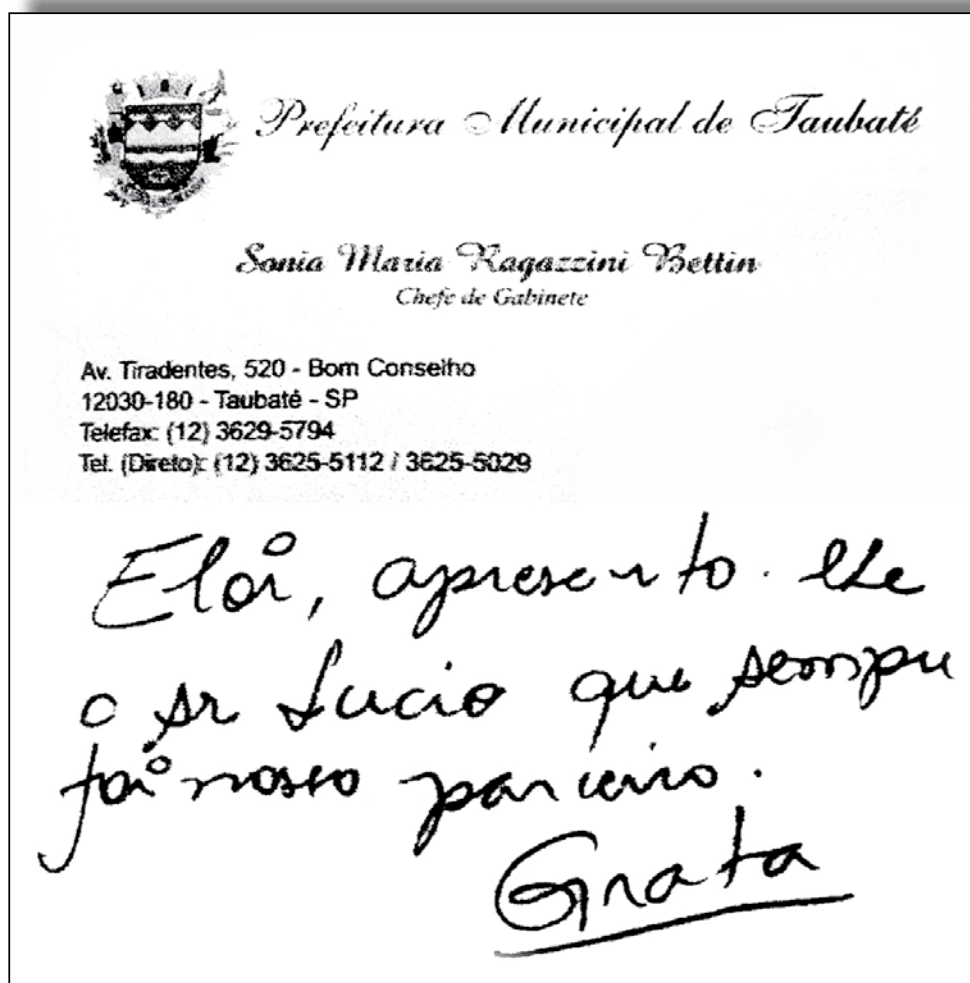 Prefeitura Municipal de Taubaté
Sonia Maria Ragazzini Bettin
Chefe de Gabinete
Av. Tiradentes, 520 - Bom Conselho
12030-180 - Taubaté - SP
Telefax: (12) 3629-5794
Tel. (Direto): (12) 3625-5112 / 3625-5029
Eloi, apresento-lhe
o sr Lucio que sempre
foi nosso parceiro.
Grata